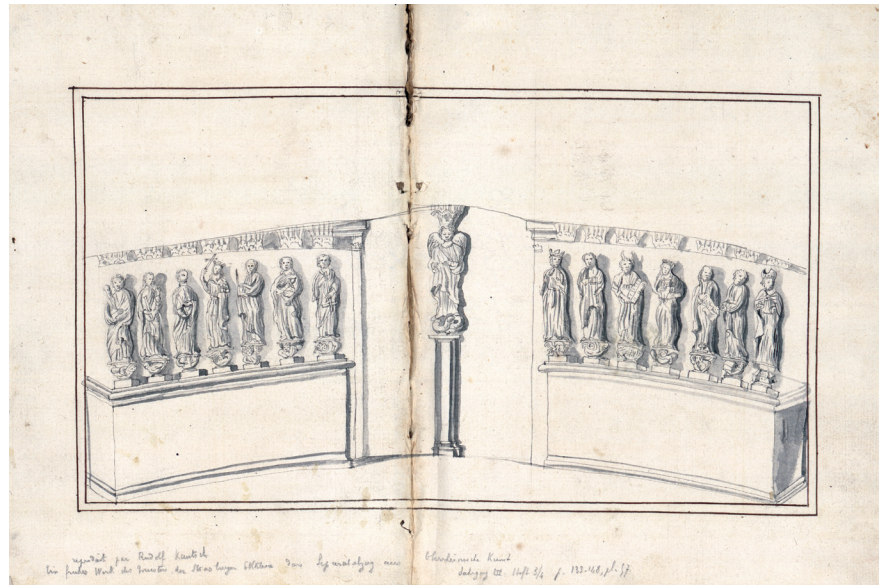 reproduit par Rudolf Kautsch
Ein frühes Werk des Meisters der Strassburger Ekklesia dans Separatabzug aus Oberrheinische Kunst
Jahrgang III. Heft 3/4 p. 133-148, pl. 57